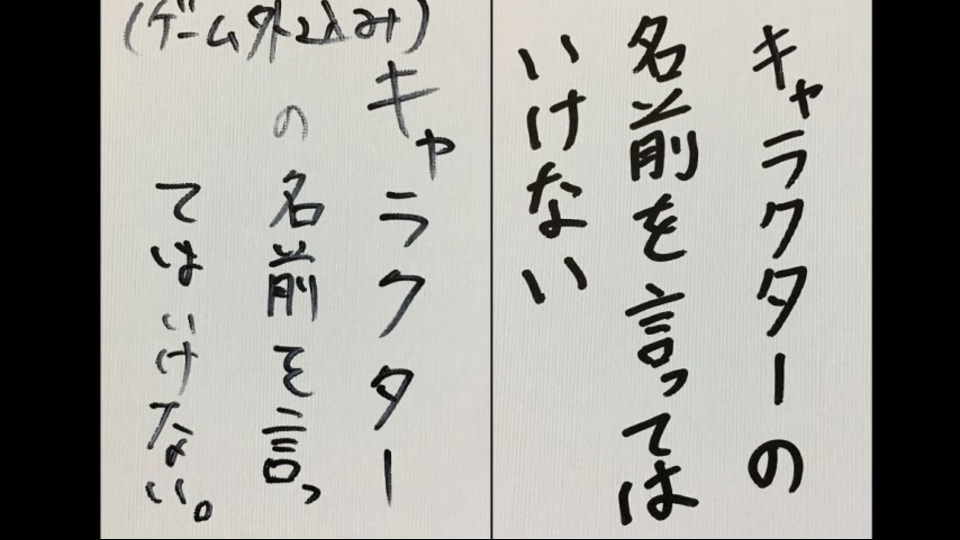 キャラクターの
名前を言っては
いけない
(ゲーム外込み)
キャラクター
の名前を言っ
てはいけない。